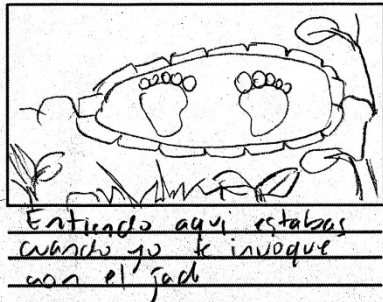 Entiendo aqui estabas
cuando yo te invoque
con el jad